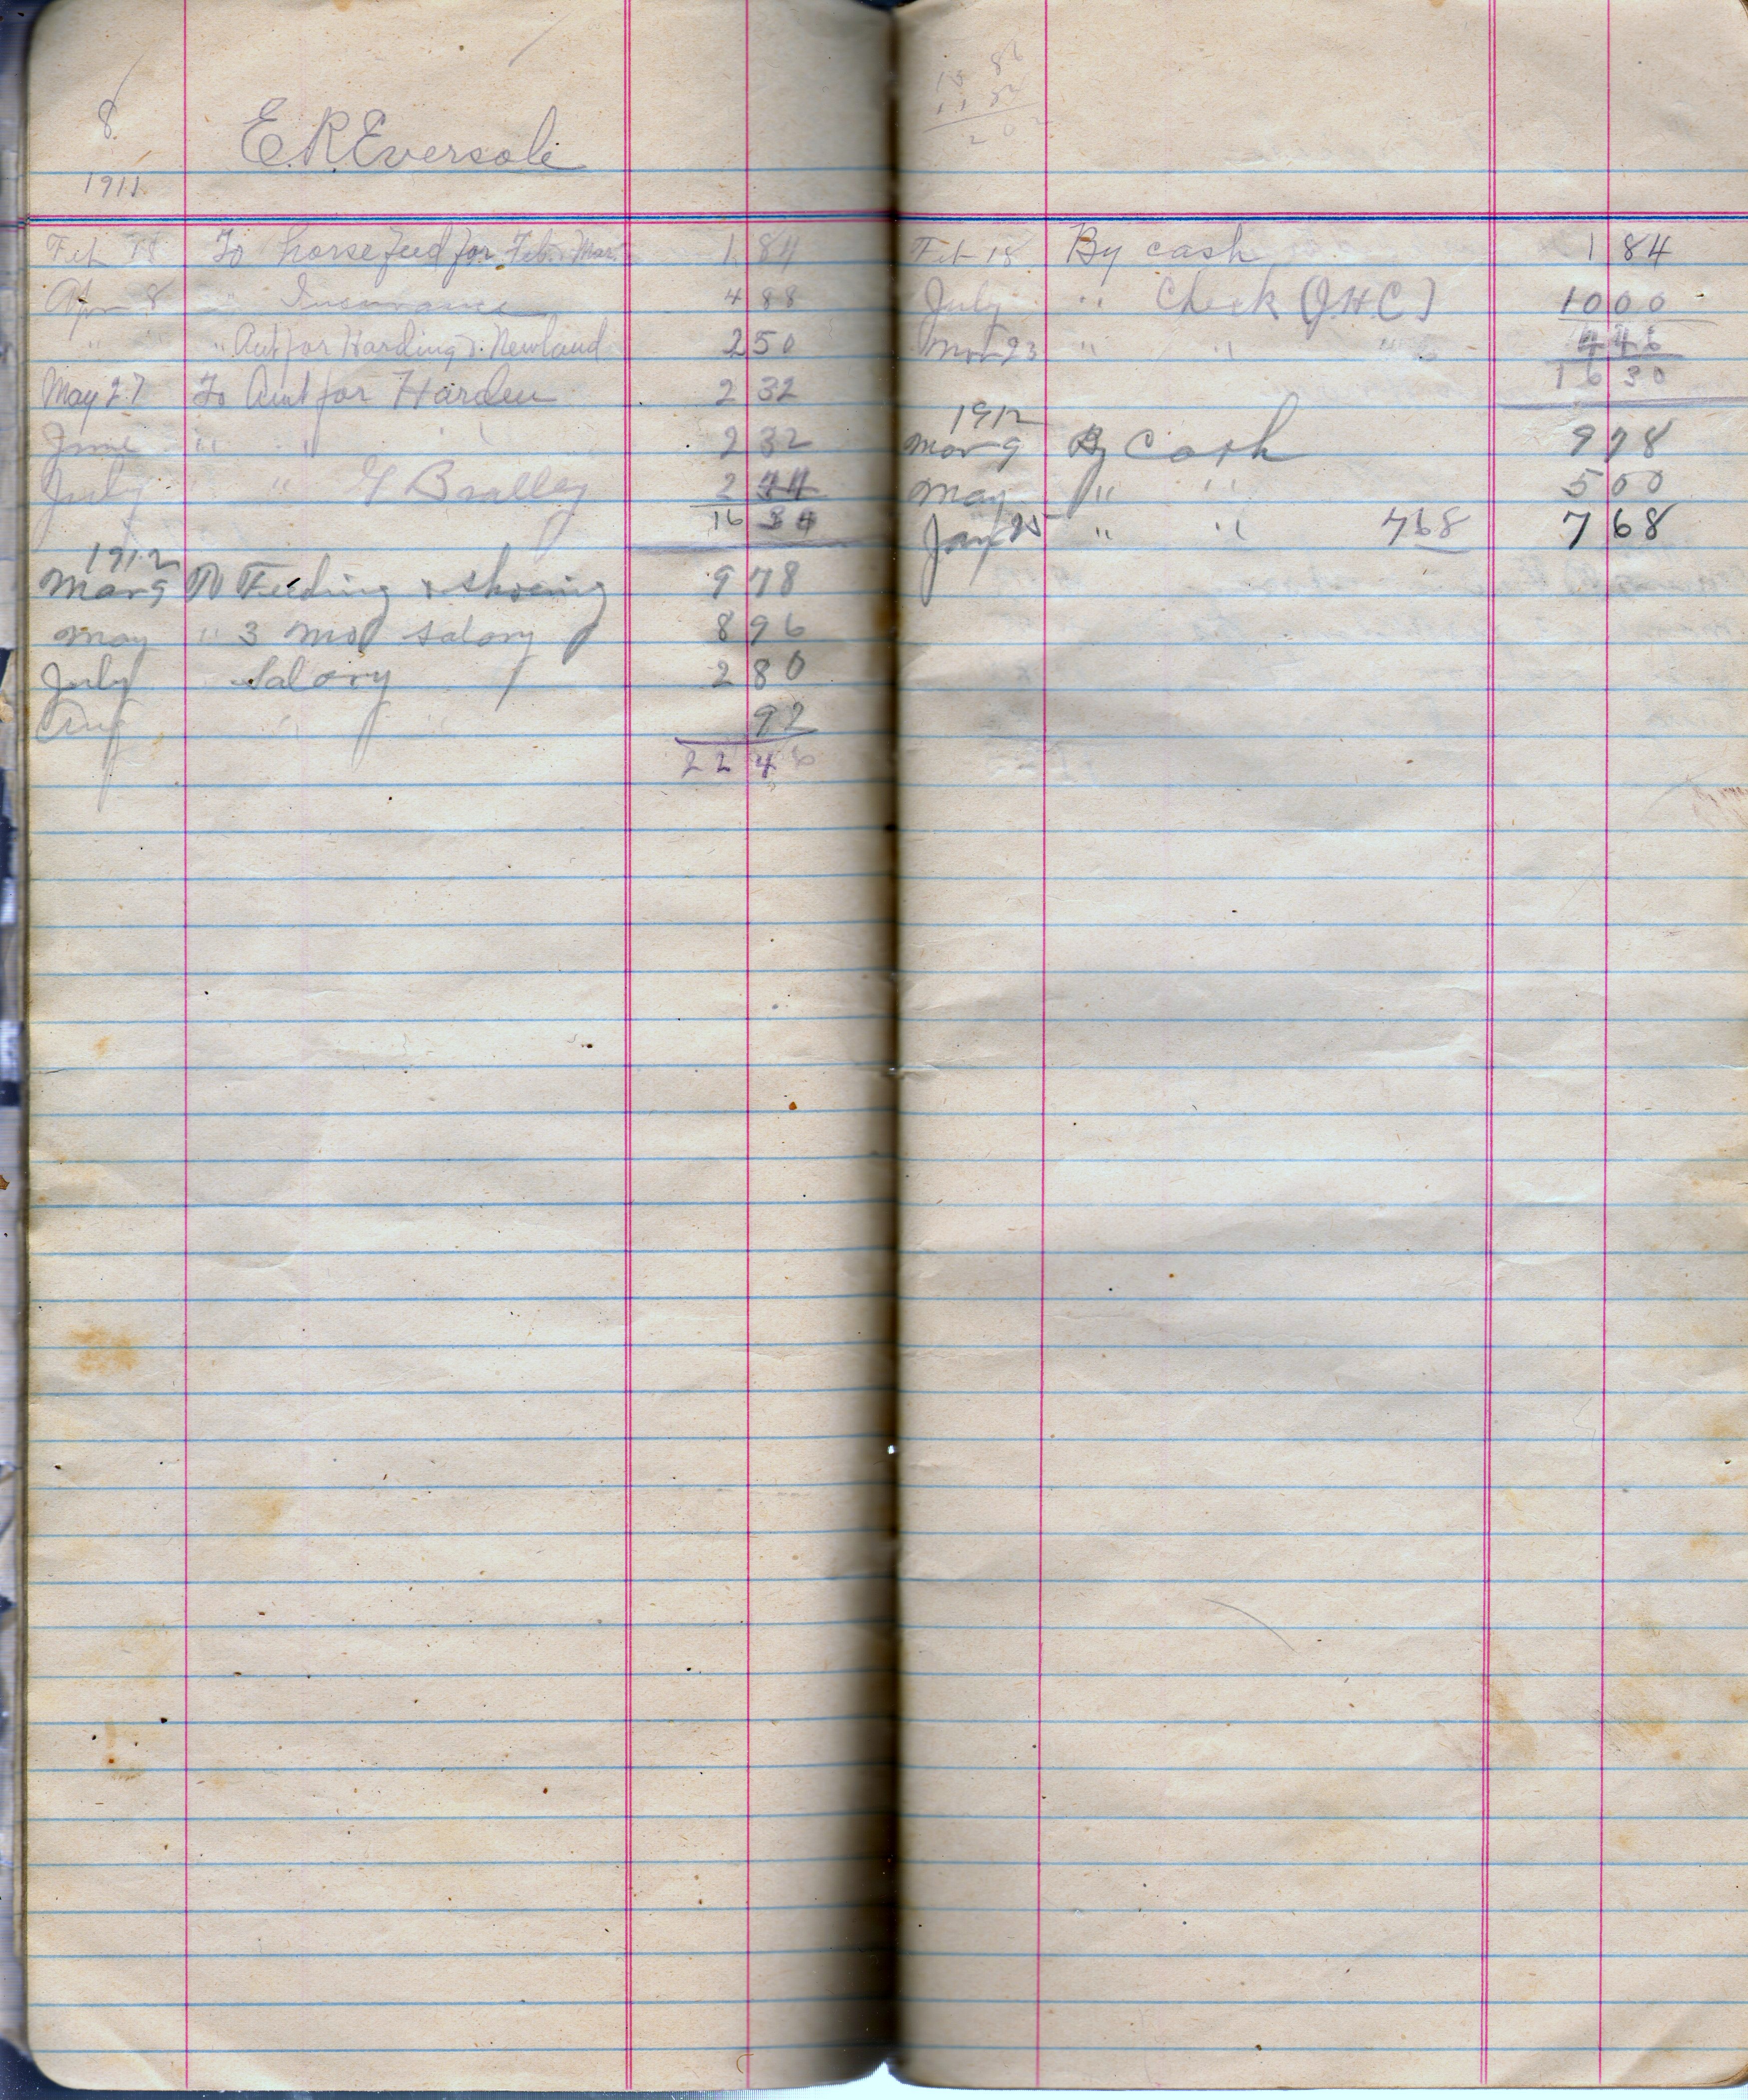 8
E.R.Eversole
1911
Feb 18 To horse feed for Feb. Mar. 1 84
Apr 8 " Insurance 4 88
" " " Amt for Harding & Newland 2 50
May 27 To Amt for Harden 2 32
June " " " 2 32
July " G Bralley 2 44
16 34
1912
Mar 9 To Feeding & Shoeing 9 78
May " 3 mos salary 8 96
July Salary 2 80
Aug " " 92
22 46
Feb 18 By cash 1 84
July " Check (J.H.C) 10 00
Nov 23 " " " 4 46
16 30
1912
Mar 9 By Cash 9 78
May " " 5 00
Jan 25 " " 768 7 68